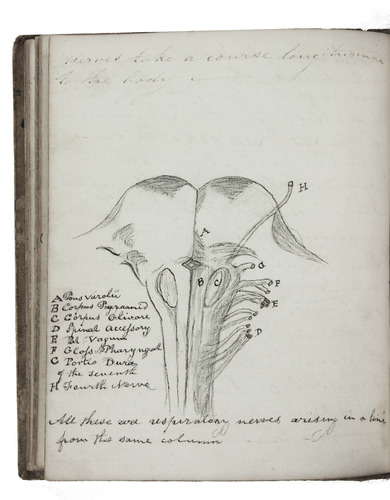 nerves take a course longitudinal
to the body
H
A
G
B C
F
E
D
A Pons varolii
B Corpus Pyramid
C Corpus Olivare
D Spinal Accessory
E Par Vagum
F Gloss. Pharyngal
G Portio Dura
of the seventh
H Fourth Nerve
All these are respiratory nerves arising in a line
from the same column